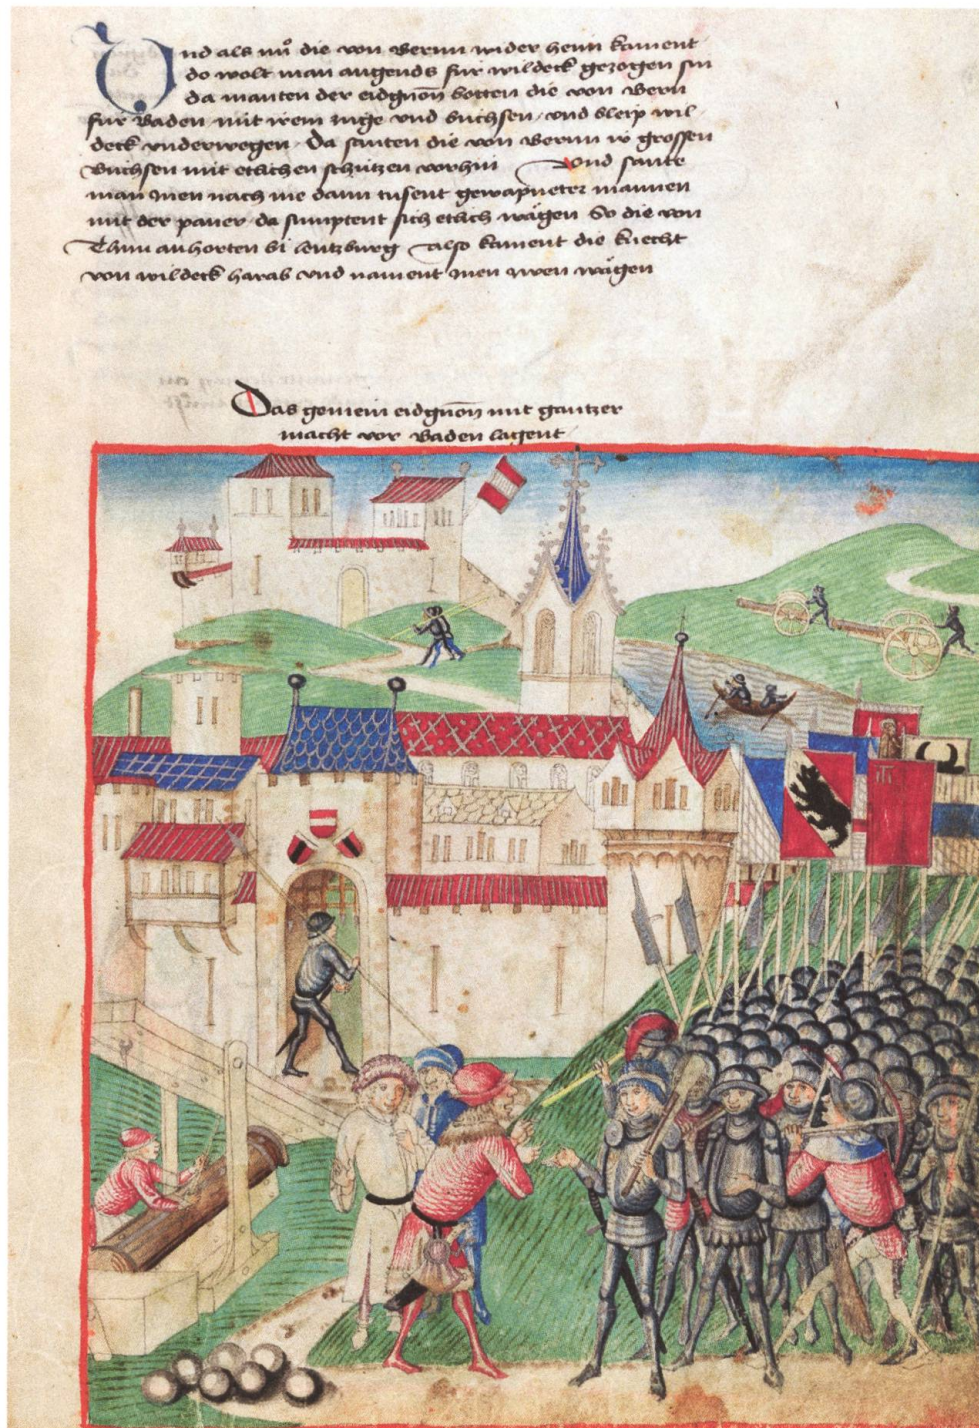 Und als nuͦ die von Bernn wider heim kament
do wolt man angends fur wildeck gezogen sin
da manten der eidgnoñ botten die von Bern
fur Baden mit irem zuge vnd buchsen vnd bleip wil
deck vnderwegen Da santen die von Bernn ir grossen
Buchsen mit etlichen schutzen vorhin Vnd sante
man inen nach me dann tusent gewapneter mannen
mit der paner da sumptent sich etlich waͤgen So die von
Thun an horten bi lentzburg also kament die knecht
von wildeck harab vnd nament inen zwen waͤgen
Das gemein eidgnoñ mit gantzer
macht vor Baden lagent